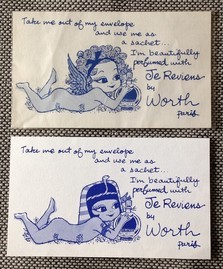 Take me out of my envelope
and use me as
a sachet...
I'm beautifully
perfumed with
Je Reviens
by
Worth
paris
Take me out of my envelope
and use me as
a sachet...
I'm beautifully
perfumed with
Je Reviens
by
Worth
paris